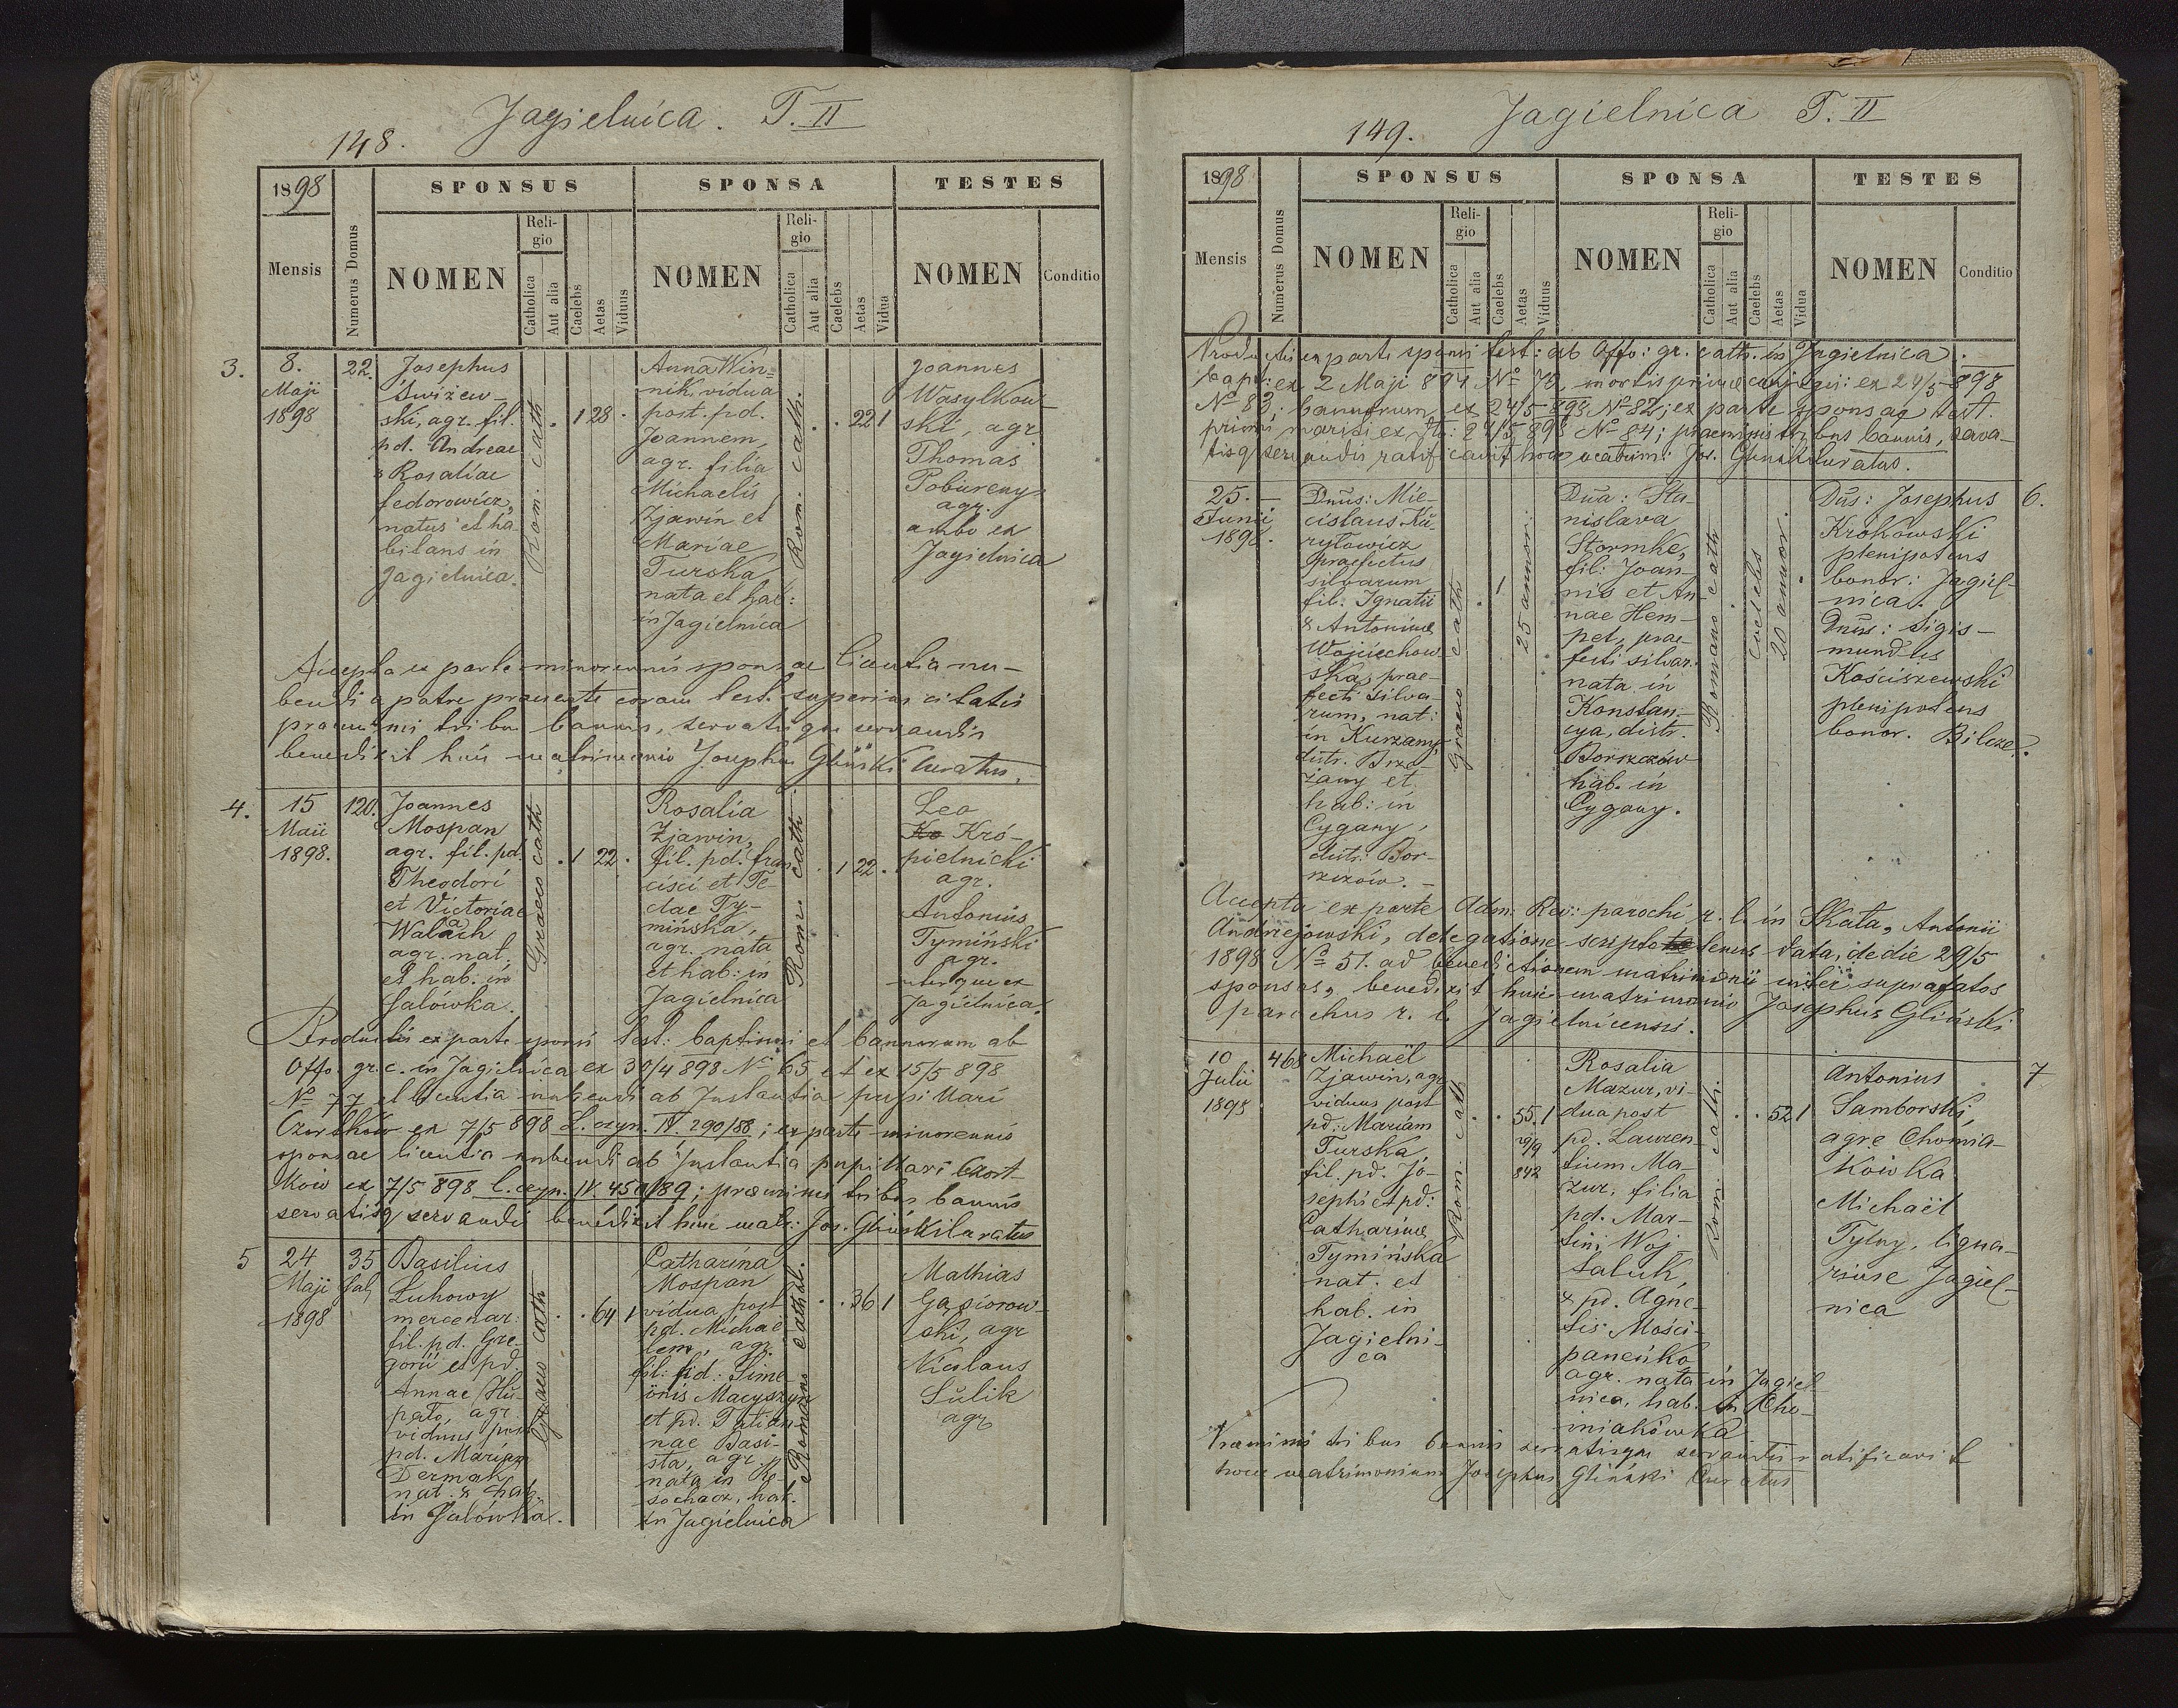 Jagielnica. T. II
148.
1898
SPONSUS
SPONSA
TESTES
Mensis
Numerus Domus
NOMEN
Religio
Catholica
Aut alia
Caelebs
Aetas
Viduus
NOMEN
Religio
Catholica
Aut alia
Caelebs
Aetas
Vidua
NOMEN
Conditio
3.
8.
Maji
1898
22.
Josephus
Świżew-
ski, agr. fil.
pd. Andreae
& Rosaliae
fedorowicz,
natus et ha
bitans in
Jagielnica.
Rom. cath
1 28.
Anna Win-
nik, vidua
post. pd.
Joannem,
agr. filia
Michaelis
Zjawin et
Mariae
Turska
nata et hab:
in Jagielnica
Rom. cath.
. 22 1
Joannes
Wasylkow
ski, agr
Thomas
Pobureny
agr.
ambo ex
Jagielnica
Accepta ex parte minorennis sponsae licentia nu-
bendi a patre praesente coram test. superius citatis
praemissis tribus bannis, servatisque servandis
benedixit huic matrimonio Josephus Gliński Curatus.
4.
15
Maii
1898.
120.
Joannes
Mospan
agr. fil. pd.
Theodori
et Victoriae
Walach
agr. nat.
et hab. in
Salówka.
Graeco cath
. 1 22.
Rosalia
Zjawin,
fil. pd. fran
cisci et Te-
clae Ty-
mińska,
agr. nata
et hab: in
Jagielnica
Rom. cath
. 1 22.
Leo
Kro Kró-
pielnicki
agr.
Antonius
Tymiński
agr.
uterque ex
Jagielnica.
Productis ex parte sponsi test: baptismi et bannorum ab
Offo. gr. c. in Jagielnica ex 30/4 898 No 65 et ex 15/5 898
No 77 et licentia nubendi ab Instantia pupillari
Czortków ex 7/5 898 L. czyn. IV. 290/88; ex parte minorennis
sponsae licentia nubendi ab Instantia pupillari Czort-
ków ex 7/5 898 l. czyn. IV. 450/89; praemissis tribus bannis
servatisq servandis benedixit huic matr: Jos. Gliński Curatus
5
24
Maji
1898
35
Sal,
Basilius
Luhowy
mercenar:
fil. pd. Gre
gorii et pd.
Annae Hu-
pało, agr.
viduus post
pd. Mariam
Dermak
nat. & hab.
in Salówka.
Graeco cath
. . 64 1
Catharina
Mospan
vidua post
pd. Michaë
lem, agr.
fil: pd: Sime
onis Macyszyn
et pd. Tatian
nae Basi-
sta, agr.
nata in Ro-
sochacz, hab.
in Jagielnica
Romano cathol.
. . 36 1
Mathias
Gąsiorow-
ski, agr
Nicolaus
Sulik
agr
Jagielnica T. II
149.
1898
SPONSUS
SPONSA
TESTES
Mensis
Numerus Domus
NOMEN
Religio
Catholica
Aut alia
Caelebs
Aetas
Viduus
NOMEN
Religio
Catholica
Aut alia
Caelebs
Aetas
Vidua
NOMEN
Conditio
Productis ex parte sponsi test: ab Offo: gr. cath. in Jagielnica.
bapt: ex 2 Maji 894 No 75, mortis primae conjugis: ex 24/5 898
No 83; bannorum ex 24/5 898 No 82; ex parte sponsae test.
primi mariti ex 24/5 898 No 84; praemissis tribus bannis, serva-
tisq servandis ratificavit hoce Jos. Gliński Curatus.
25.
Junii
1898.
Dnus: Mie-
cislaus Ku-
ryłowicz
praefectus
silvarum
fil: Ignatii
& Antoninae
Wojciechow
ska, prae-
fecti silva
rum, nat:
in Kurzany
distr. Brze
żany et
hab: in
Cygany,
distr: Bor-
szczów.
Graeco cath
1
25 annor:
Dna: Sta-
nislava
Stormke,
fil: Joan-
nis et An-
nae Hem-
pel, prae
fecti silvar:
nata in
Konstan-
cya, distr.
Borszczów
hab. in
Cygany.
Romano cath
coelebs
20 annor.
Dus: Josephus
Krokowski
plenipotens
bonor: Jagiel-
nica.
Dnus: Sigis-
mundus
Kościszewski
plenipotens
bonor. Bilcze.
6.
Accepta ex parte Adm: Rev: parochi r. l. in Skała, Antonii
Andrzejowski, delegatione scripto tenus data, de die 29/5
1898 No 51. ad benedictionem matrimonii inter supra fatos
sponsos, benedixit huic matrimonio Josephus Gliński
parochus r. l. Jagielnicensis.
10
Julii
1898
468
Michaël
Zjawin, agr
viduus post
pd. Mariam
Turska,
fil. pd. Jo-
sephi et pd:
Catharinae
Tymińska
nat. et
hab. in
Jagielni-
ca
Rom. cath
. . 55. 1
29/9
842
Rosalia
Mazur, vi-
dua post
pd. Lauren-
tium Ma-
zur, filia
pd. Mar-
tini Woj-
taluk,
& pd. Agne-
tis Mości-
paneńko
agr. nata in Jagiel
nica, hab. in Cho-
miakówka
Rom. cath.
. . 52 1
Antonius
Samborski,
agr. Chomia-
kówka
Michaël
Tylny, ligna-
rius e Jagiel-
nica
7
Praemissis tribus bannis servatisque servandis ratificavit
hoce matrimonium Josephus Gliński Curatus